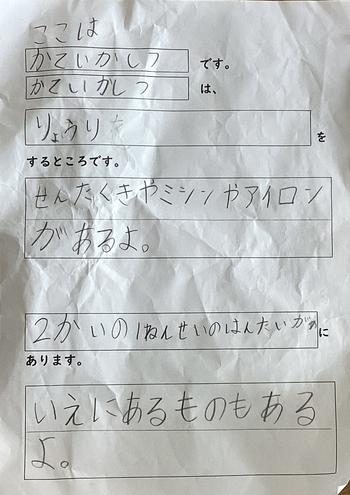 ここは
かていかしつ です。
かていかしつ は、
りょうりを を
するところです。
せんたくきやミシンやアイロン
があるよ。
2かいの1ねんせいのはんたいがわ に
あります。
いえにあるものもある
よ。